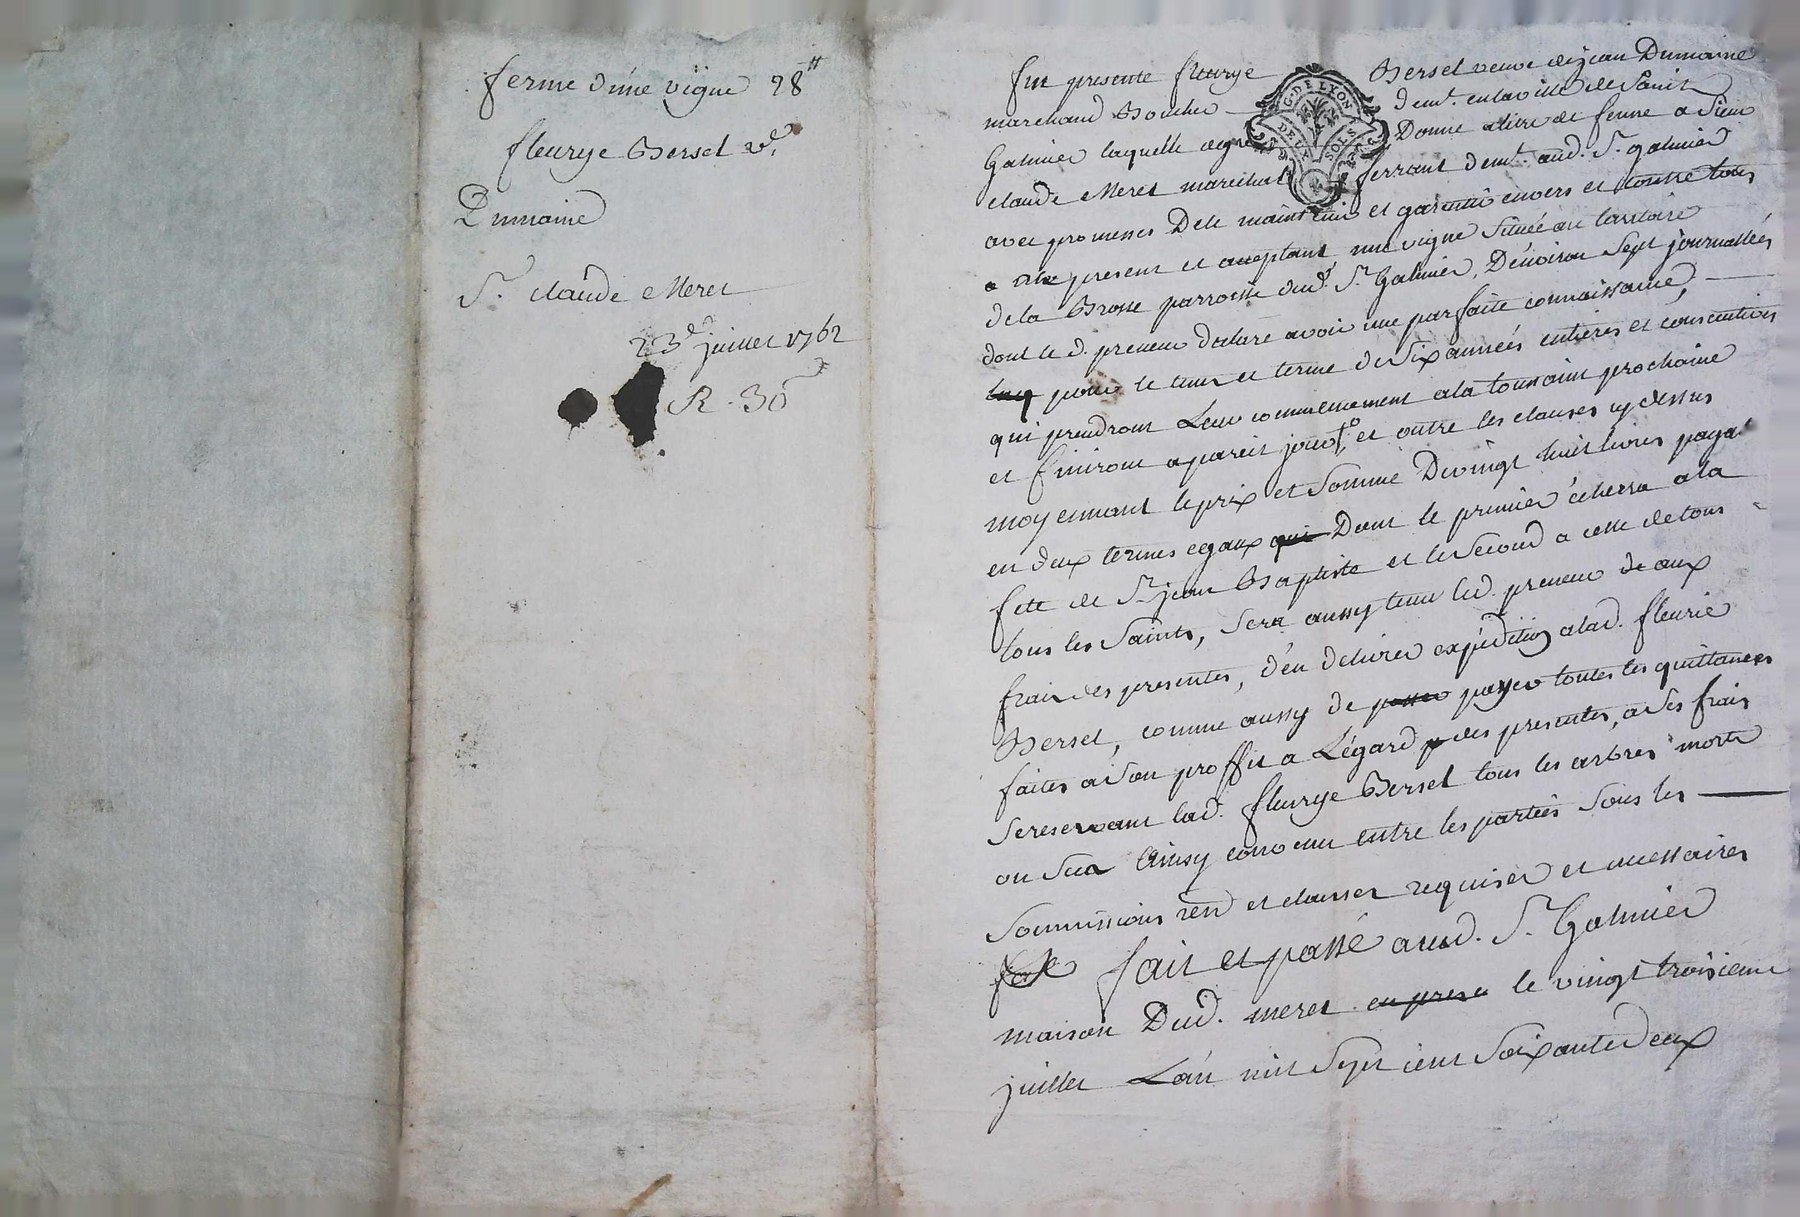 ferme d'une vigne 28 ₶
fleurye Berset ve.
Dumaine
Sr. claude Meret
23e juillet 1762
R. 30
G. DE LYON
DEUX SOLS
fut presente fleurye Berset veuve de jean Dumaine
marchand Boucher demt. en la ville de Saint
Galmier laquelle de gre Donne a titre de ferme a Sieur
claude Meret marechal ferrant demt. aud. St. galmier
avec promesses De le maintenir et garentir envers et contre tous
present et acceptant une vigne Située au territoire
de la Brosse parroisse dud. St. Galmier, D'environ Sept journallées
dont le d. preneur declare avoir une parfaite connaissance,
pour le tems et terme de Six années entieres et consecutives
qui prendront Leur commencement a la toussaint prochaine
et finiront a pareil jour, et outre les clauses cy dessus
moyennant le prix et Somme De vingt huit livres payab
en deux termes egaux qui Dont le premier écherra a la
fete de St. jean Baptiste et le Second a celle de tous
tous les Saints, Sera aussy tenu led. preneur de aux
frais des presentes, d'en delivrer expédition a lad. fleurie
Berset, comme aussy de passer payer toutes les quittances
faites a Son proffit a L'égard des presentes, a Ses frais
Se reservant lad. fleurye Berset tous les arbres morts
ou Sua Ainsy convenu entre les parties Sous les
Soumissions ren et clauses requises et necessaires
fait et passé aud. St. Galmier
maison Dud. meret en prese le vingt troisieme
juillet L'an mil Sept cent Soixante deux